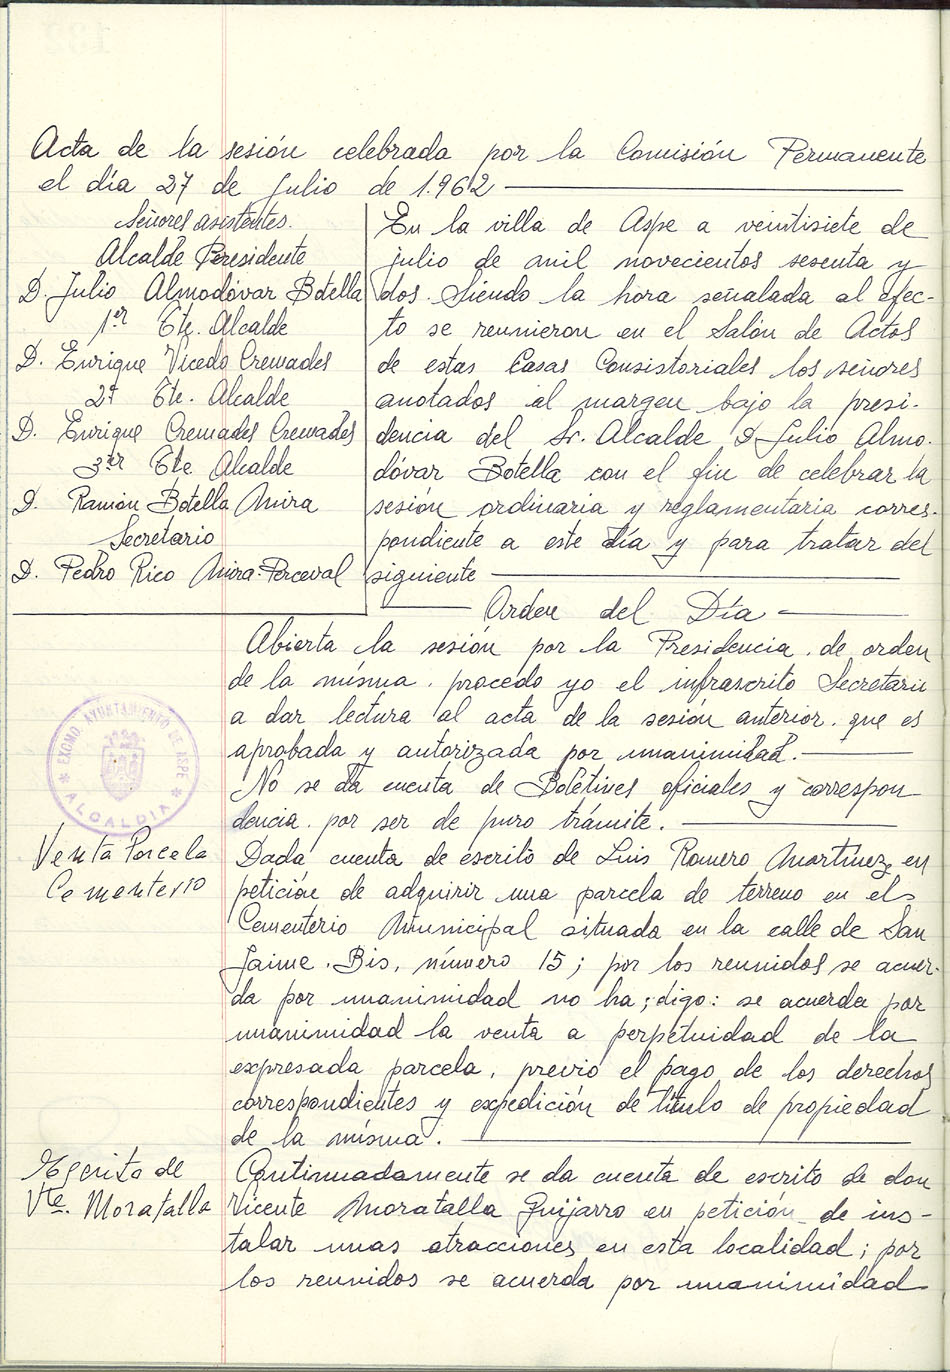 Acta de la sesión celebrada por la Comisión Permanente
el día 27 de Julio de 1.962
Señores asistentes.
Alcalde Presidente
D. Julio Almodóvar Botella
1er Tte. Alcalde
D. Enrique Vicedo Cremades
2º Tte. Alcalde
D. Enrique Cremades Cremades
3er Tte. Alcalde
D. Ramón Botella Mira
Secretario
D. Pedro Rico Mira-Perceval
En la villa de Aspe a veintisiete de
julio de mil novecientos sesenta y
dos. Siendo la hora señalada al efec-
to se reunieron en el Salón de Actos
de estas Casas Consistoriales los señores
anotados al margen bajo la presi-
dencia del Sr. Alcalde D. Julio Almo-
dóvar Botella con el fin de celebrar la
sesión ordinaria y reglamentaria corres-
pondiente a este día y para tratar del
siguiente
Orden del Día
Abierta la sesión por la Presidencia. de orden
de la misma. procedo yo el infrascrito Secretario
a dar lectura al acta de la sesión anterior. que es
aprobada y autorizada por unanimidad.
No se da cuenta de Boletines oficiales y correspon
dencia. por ser de puro trámite.
EXCMO. AYUNTAMIENTO DE ASPE
* ALCALDIA *
Venta Parcela
Cementerio
Dada cuenta de escrito de Luis Romero Martínez en
petición de adquirir una parcela de terreno en el
Cementerio Municipal situada en la calle de San
Jaime. Bis, número 15; por los reunidos se acuer-
da por unanimidad no ha; digo: se acuerda por
unanimidad la venta a perpetuidad de la
expresada parcela, previo el pago de los derechos
correspondientes y expedición de título de propiedad
de la misma.
Escrito de
Vte. Moratalla
Continuadamente se da cuenta de escrito de don
Vicente Moratalla Guijarro en petición de ins-
talar unas atracciones en esta localidad; por
los reunidos se acuerda por unanimidad